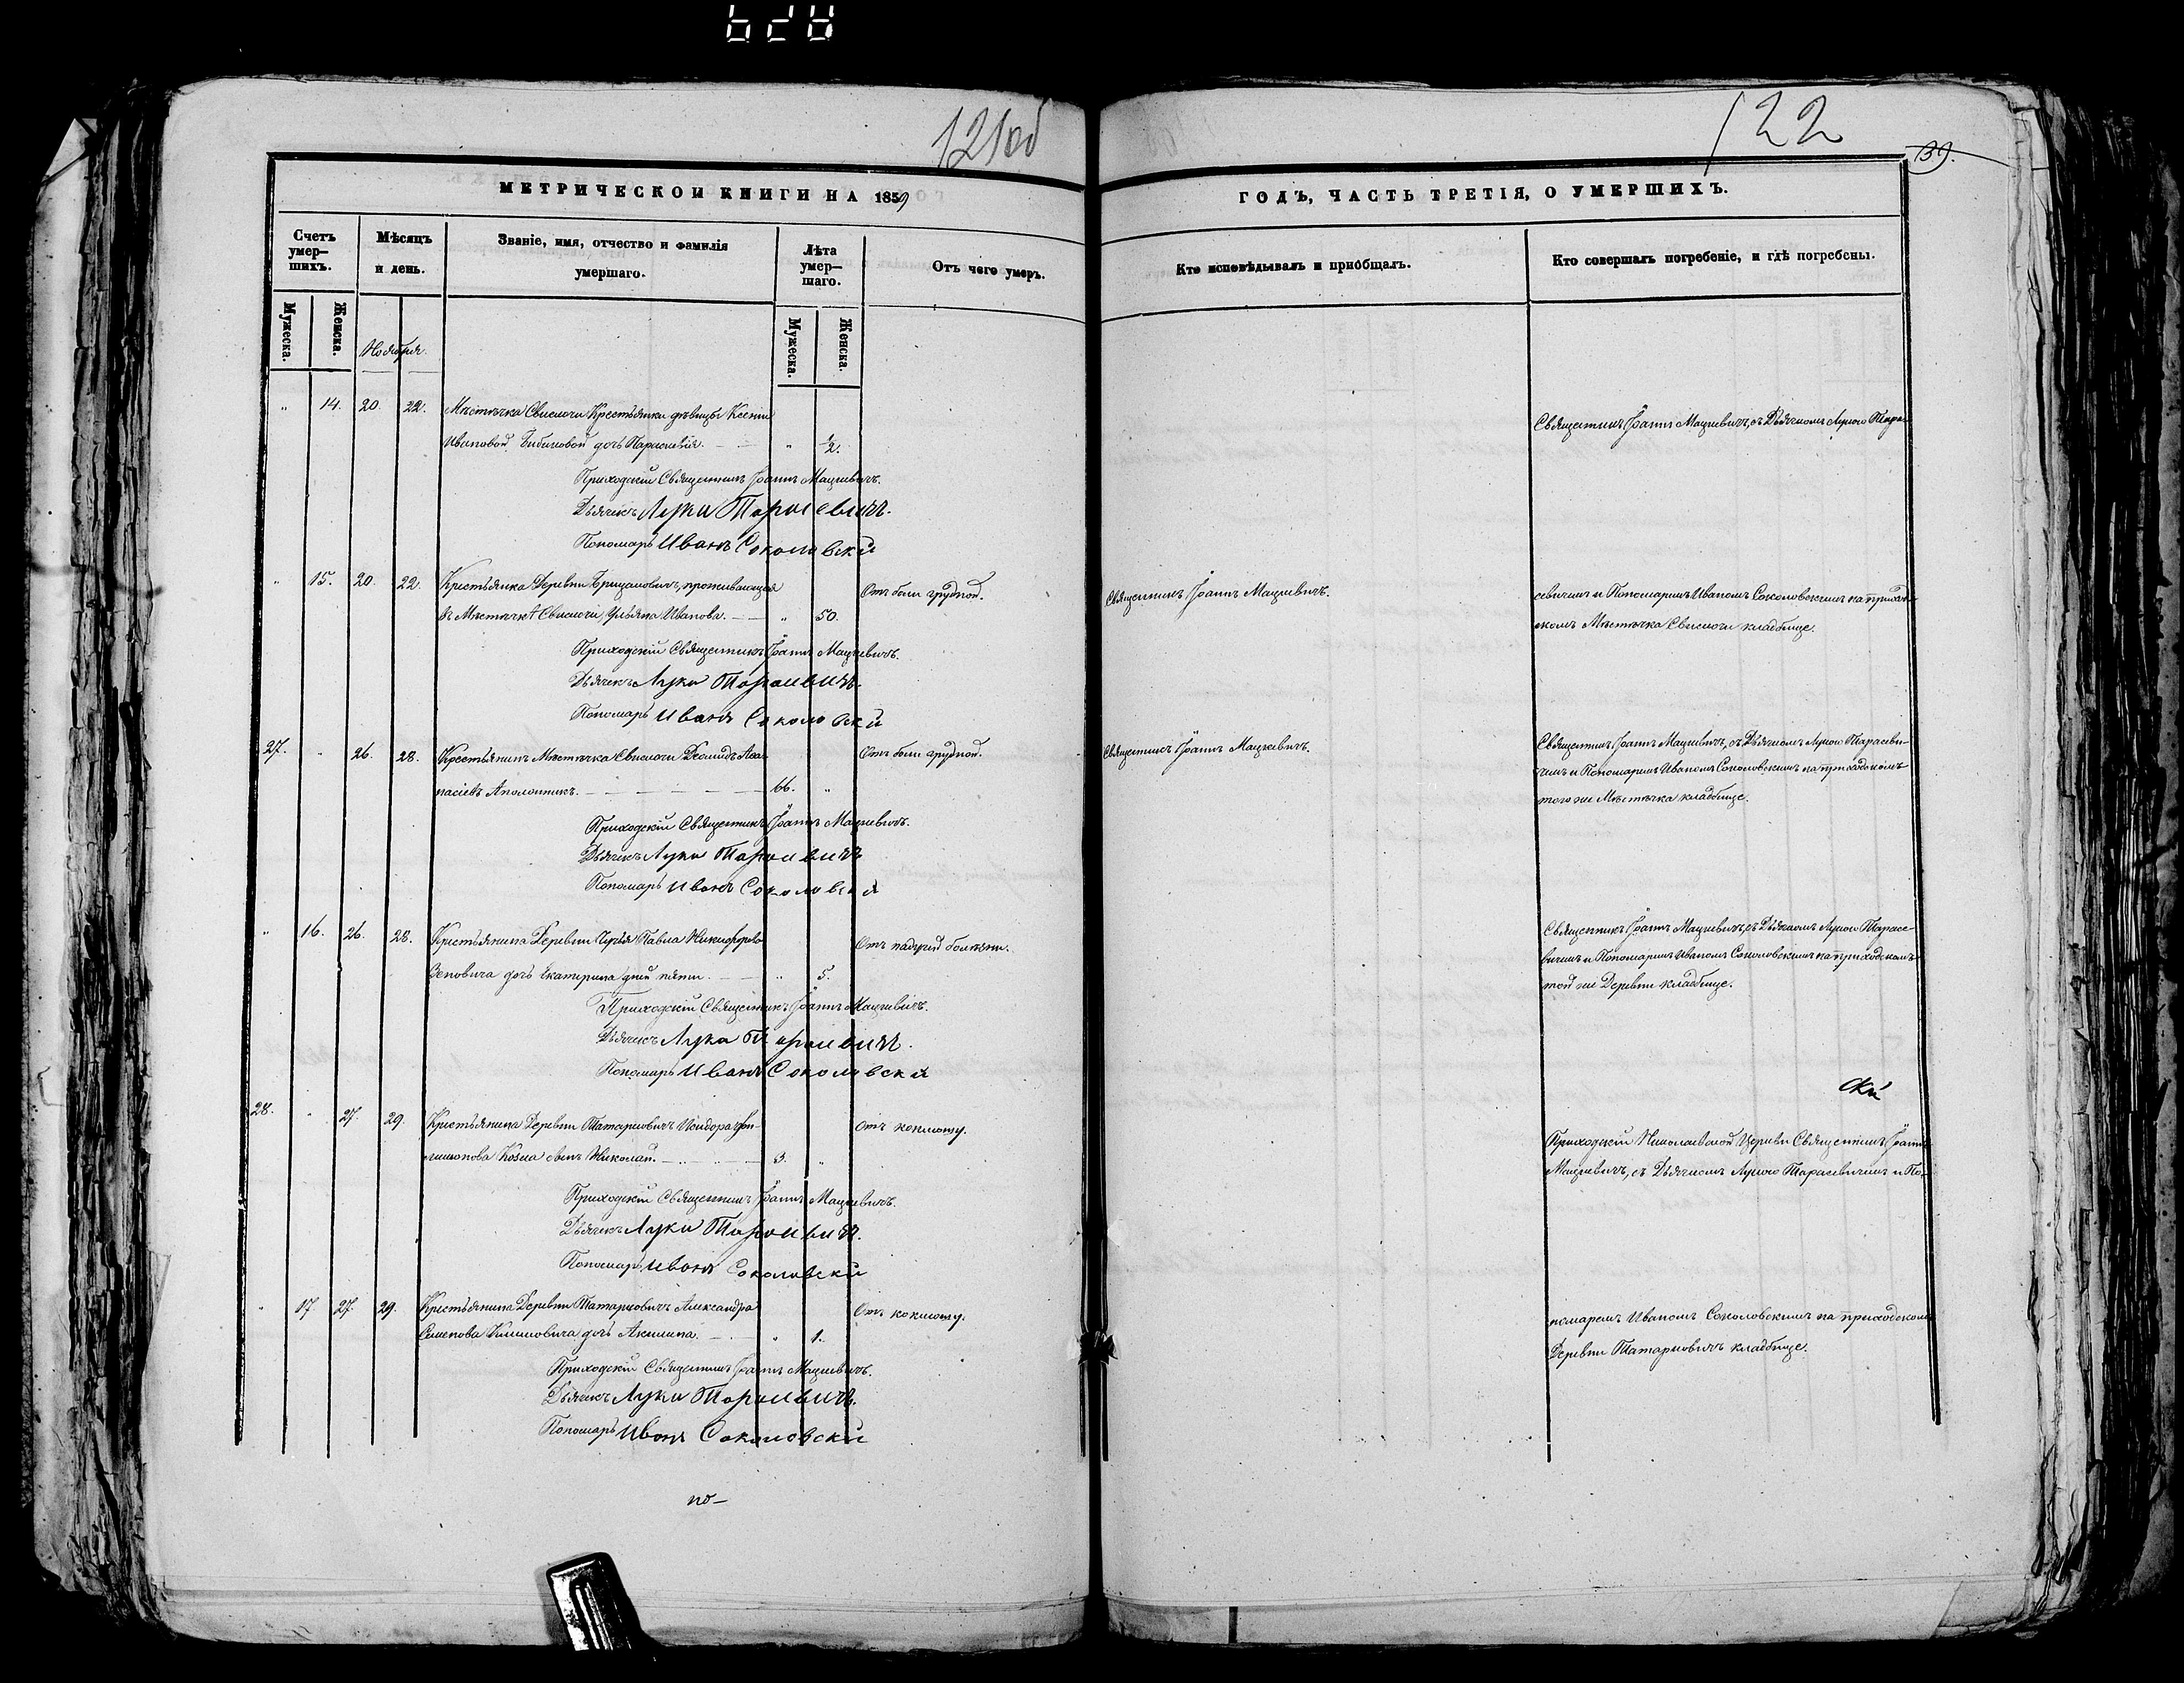 121об
122
39.
МЕТРИЧЕСКОЙ КНИГИ НА 1859
ГОДЪ, ЧАСТЬ ТРЕТІЯ, О УМЕРШИХЪ.
Счетъ умер–шихъ.
Мѣсяцъ и день.
Званіе, имя, отчество и фамилія умершаго.
Лѣта умер–шаго.
Отъ чего умеръ.
Кто исповѣдывалъ и пріобщалъ.
Кто совершалъ погребеніе, и гдѣ погребены.
Мужеска.
Женска.
Ноября.
Мужеска.
Женска.
" 14. 20. 22. Мѣстечка Свислочи Крестьянки дѣвицы Ксеніи
Ивановой дочь Параскевія. " ½.
Священникъ Іоаннъ Мацкевичъ, съ Дьячкомъ Лукою Тара-
Приходскій Священникъ Іоаннъ Мацкевичъ.
Дьячекъ Лука Тарасевичъ.
Пономарь Иванъ Соколовскій
" 15. 20. 22. Крестьянка Деревни проживающая
въ Мѣстечкѣ Свислочи Ульяна Иванова. " 50.
Отъ боли грудной.
Священникъ Іоаннъ Мацкевичъ.
севичемъ и Пономаремъ Иваномъ Соколовскимъ на приход-
скомъ Мѣстечка Свислочи кладбище.
Приходскій Священникъ Іоаннъ Мацкевичъ.
Дьячекъ Лука Тарасевичъ.
Пономарь Иванъ Соколовскій
27. " 26. 28. Крестьянинъ Мѣстечка Свислочи Діомидъ Аѳа-
насіевъ Аполоникъ. 66. "
Отъ боли грудной.
Священникъ Іоаннъ Мацкевичъ.
Священникъ Іоаннъ Мацкевичъ, съ Дьячкомъ Лукою Тарасеви-
чемъ и Пономаремъ Иваномъ Соколовскимъ на приходскомъ
того же Мѣстечка кладбище.
Приходскій Священникъ Іоаннъ Мацкевичъ.
Дьячекъ Лука Тарасевичъ
Пономарь Иванъ Соколовскій
" 16. 26. 28. Крестьянина Деревни Павла Никифорова
Зеновича дочь Екатерина дней пяти. " 5.
Отъ падучей болѣзни.
Священникъ Іоаннъ Мацкевичъ, съ Дьячкомъ Лукою Тарасе-
вичемъ и Пономаремъ Иваномъ Соколовскимъ на приходскомъ
той же Деревни кладбище.
Приходскій Священникъ Іоаннъ Мацкевичъ.
Дьячекъ Лука Тарасевичъ.
Пономарь Иванъ Соколовскій
скій
28. " 27. 29. Крестьянина Деревни Татарковичъ Исидора
Козла сынъ Николай. 3. "
Отъ коклюшу.
Приходскій Николаевской Церкви Священникъ Іоаннъ
Мацкевичъ, съ Дьячкомъ Лукою Тарасевичемъ и По-
Приходскій Священникъ Іоаннъ Мацкевичъ.
Дьячекъ Лука Тарасевичъ.
Пономарь Иванъ Соколовскій
" 17. 27. 29. Крестьянина Деревни Татарковичъ Александра
Семенова Климовича дочь Акилина. " 1.
Отъ коклюшу.
номаремъ Иваномъ Соколовскимъ на приходскомъ
Деревни Татарковичъ кладбище.
Приходскій Священникъ Іоаннъ Мацкевичъ.
Дьячекъ Лука Тарасевичъ.
Пономарь Иванъ Соколовскій
по–